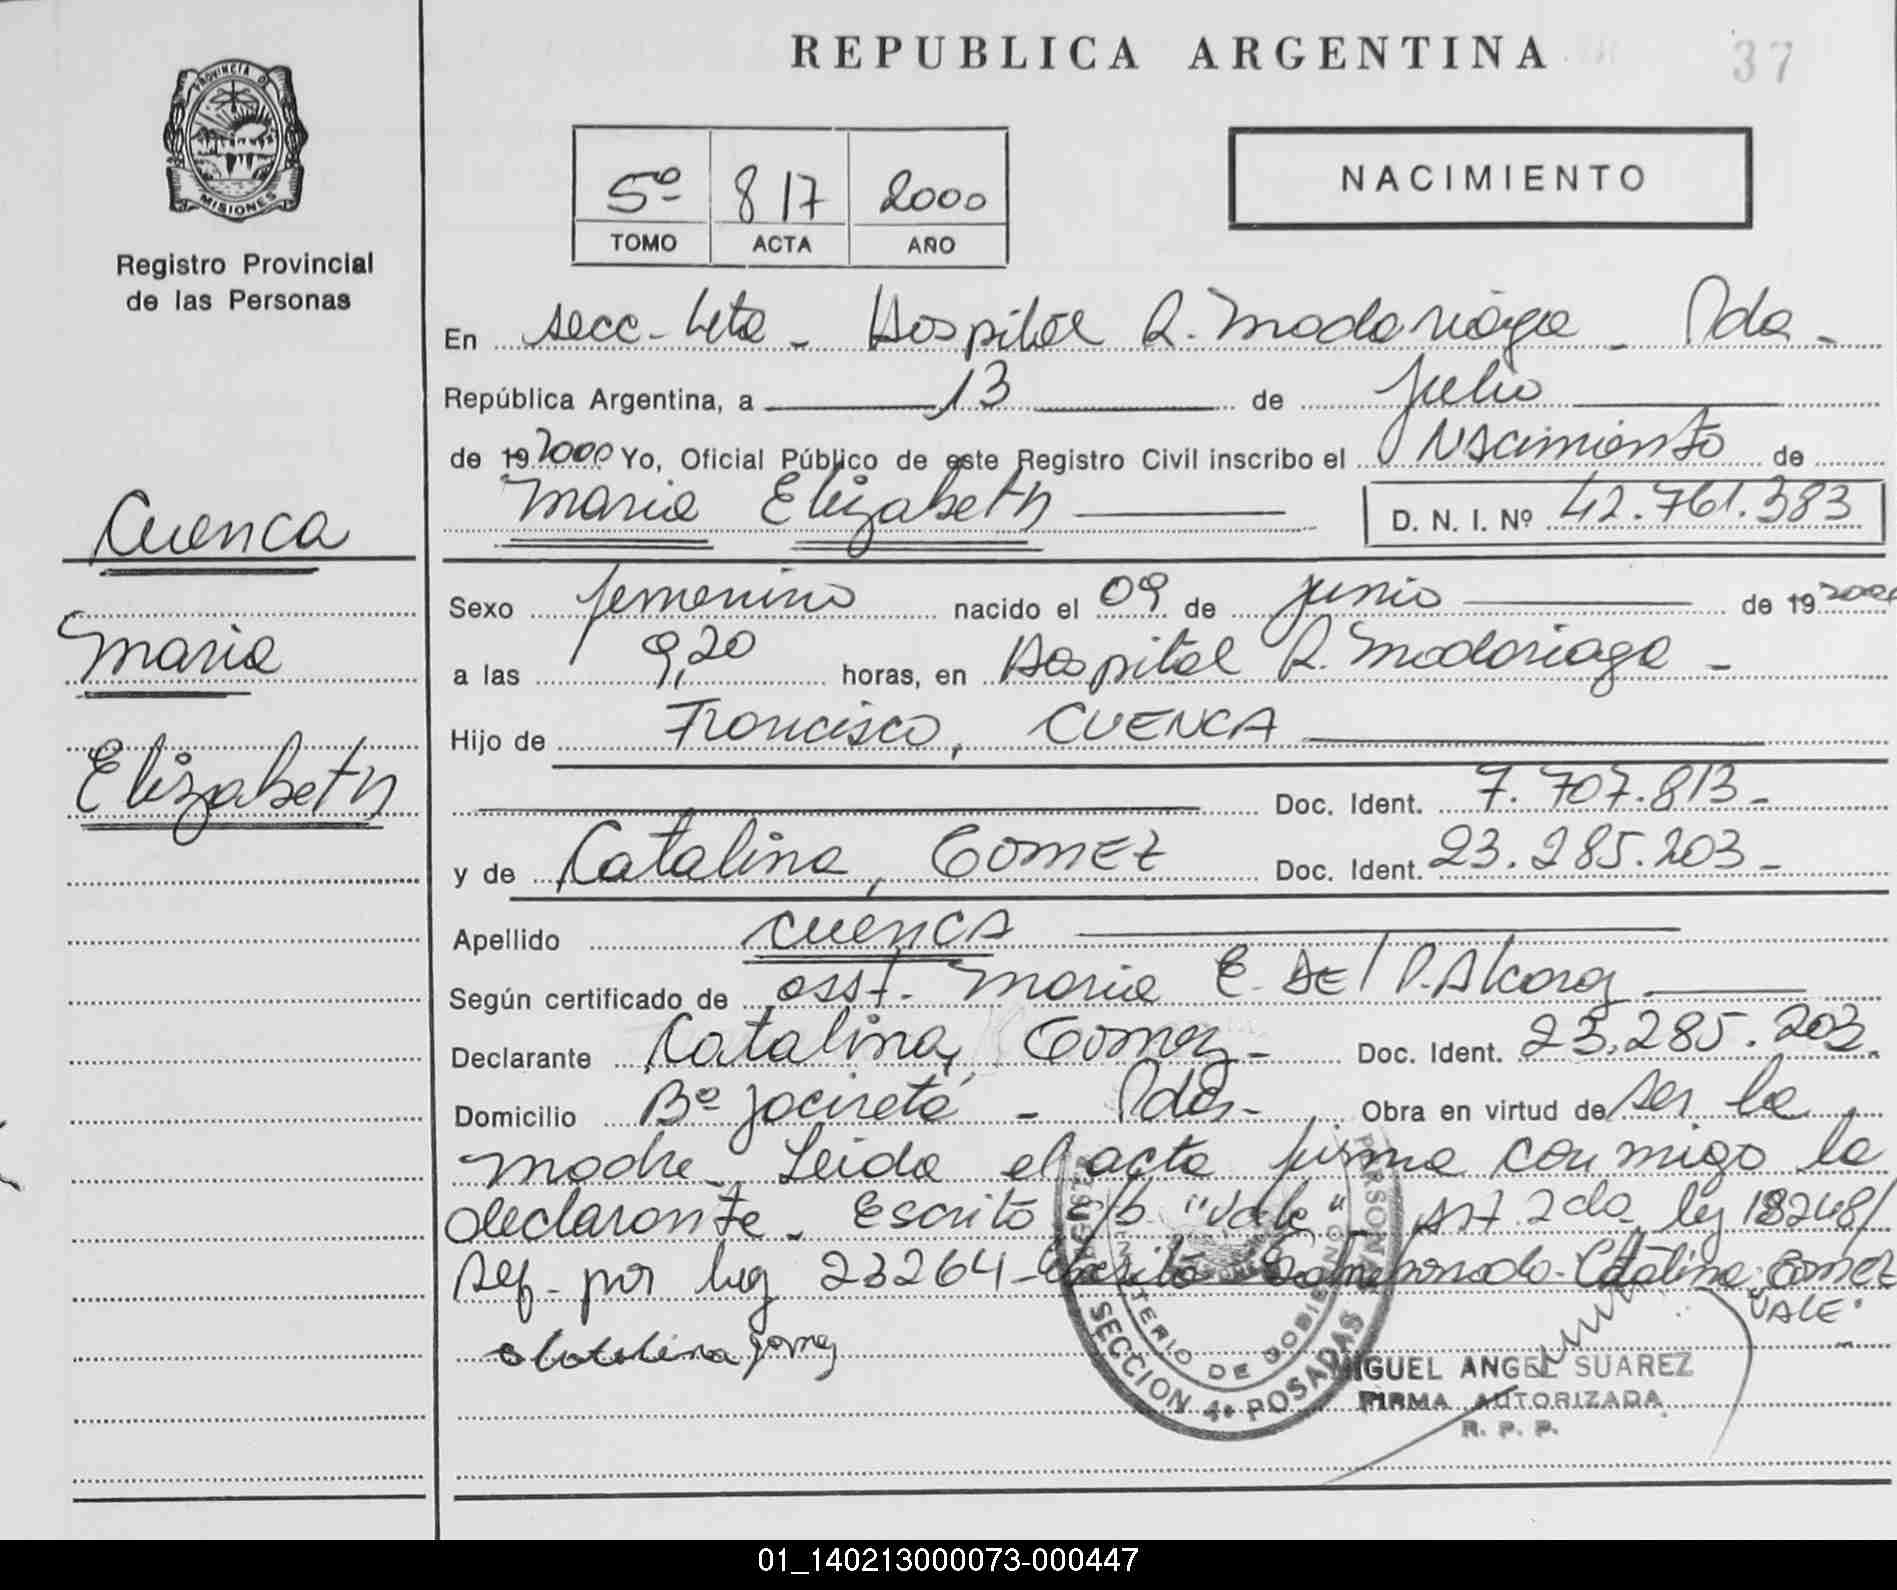 REPUBLICA ARGENTINA
37
PROVINCIA DE
MISIONES
Registro Provincial
de las Personas
5º 817 2000
TOMO ACTA AÑO
NACIMIENTO
En secc-4ta - Hospital R. Madariaga - Pda -
República Argentina, a 13 de Julio
de 192000 Yo, Oficial Público de este Registro Civil inscribo el Nacimiento de
Maria Elizabeth D. N. I. Nº 42.761.383
Cuenca
Maria
Elizabeth
Sexo femenino nacido el 09 de junio de 19 2000
a las 9,20 horas, en Hospital R. Madariaga -
Hijo de Francisco, CUENCA
Doc. Ident. 7.707.813 -
y de Catalina, Gomez Doc. Ident. 23.285.203 -
Apellido CUENCA
Según certificado de obst. Maria E. DEl P. Alcaraz
Declarante Catalina, Gomez - Doc. Ident. 23.285.203.
Domicilio Bº Yacireta - Pdas - Obra en virtud de ser la
madre. Leida el acta firma conmigo la
declarante. Escrito s/b "vale" Art. 2do. ley 18248/
Ref. por ley 23264 - Escrito Catalina Gomez
VALE.
Catalina gomez
SECCION 4º POSADAS
MINISTERIO DE GOBIERNO
MIGUEL ANGEL SUAREZ
FIRMA AUTORIZADA
R. P. P.
01_140213000073-000447